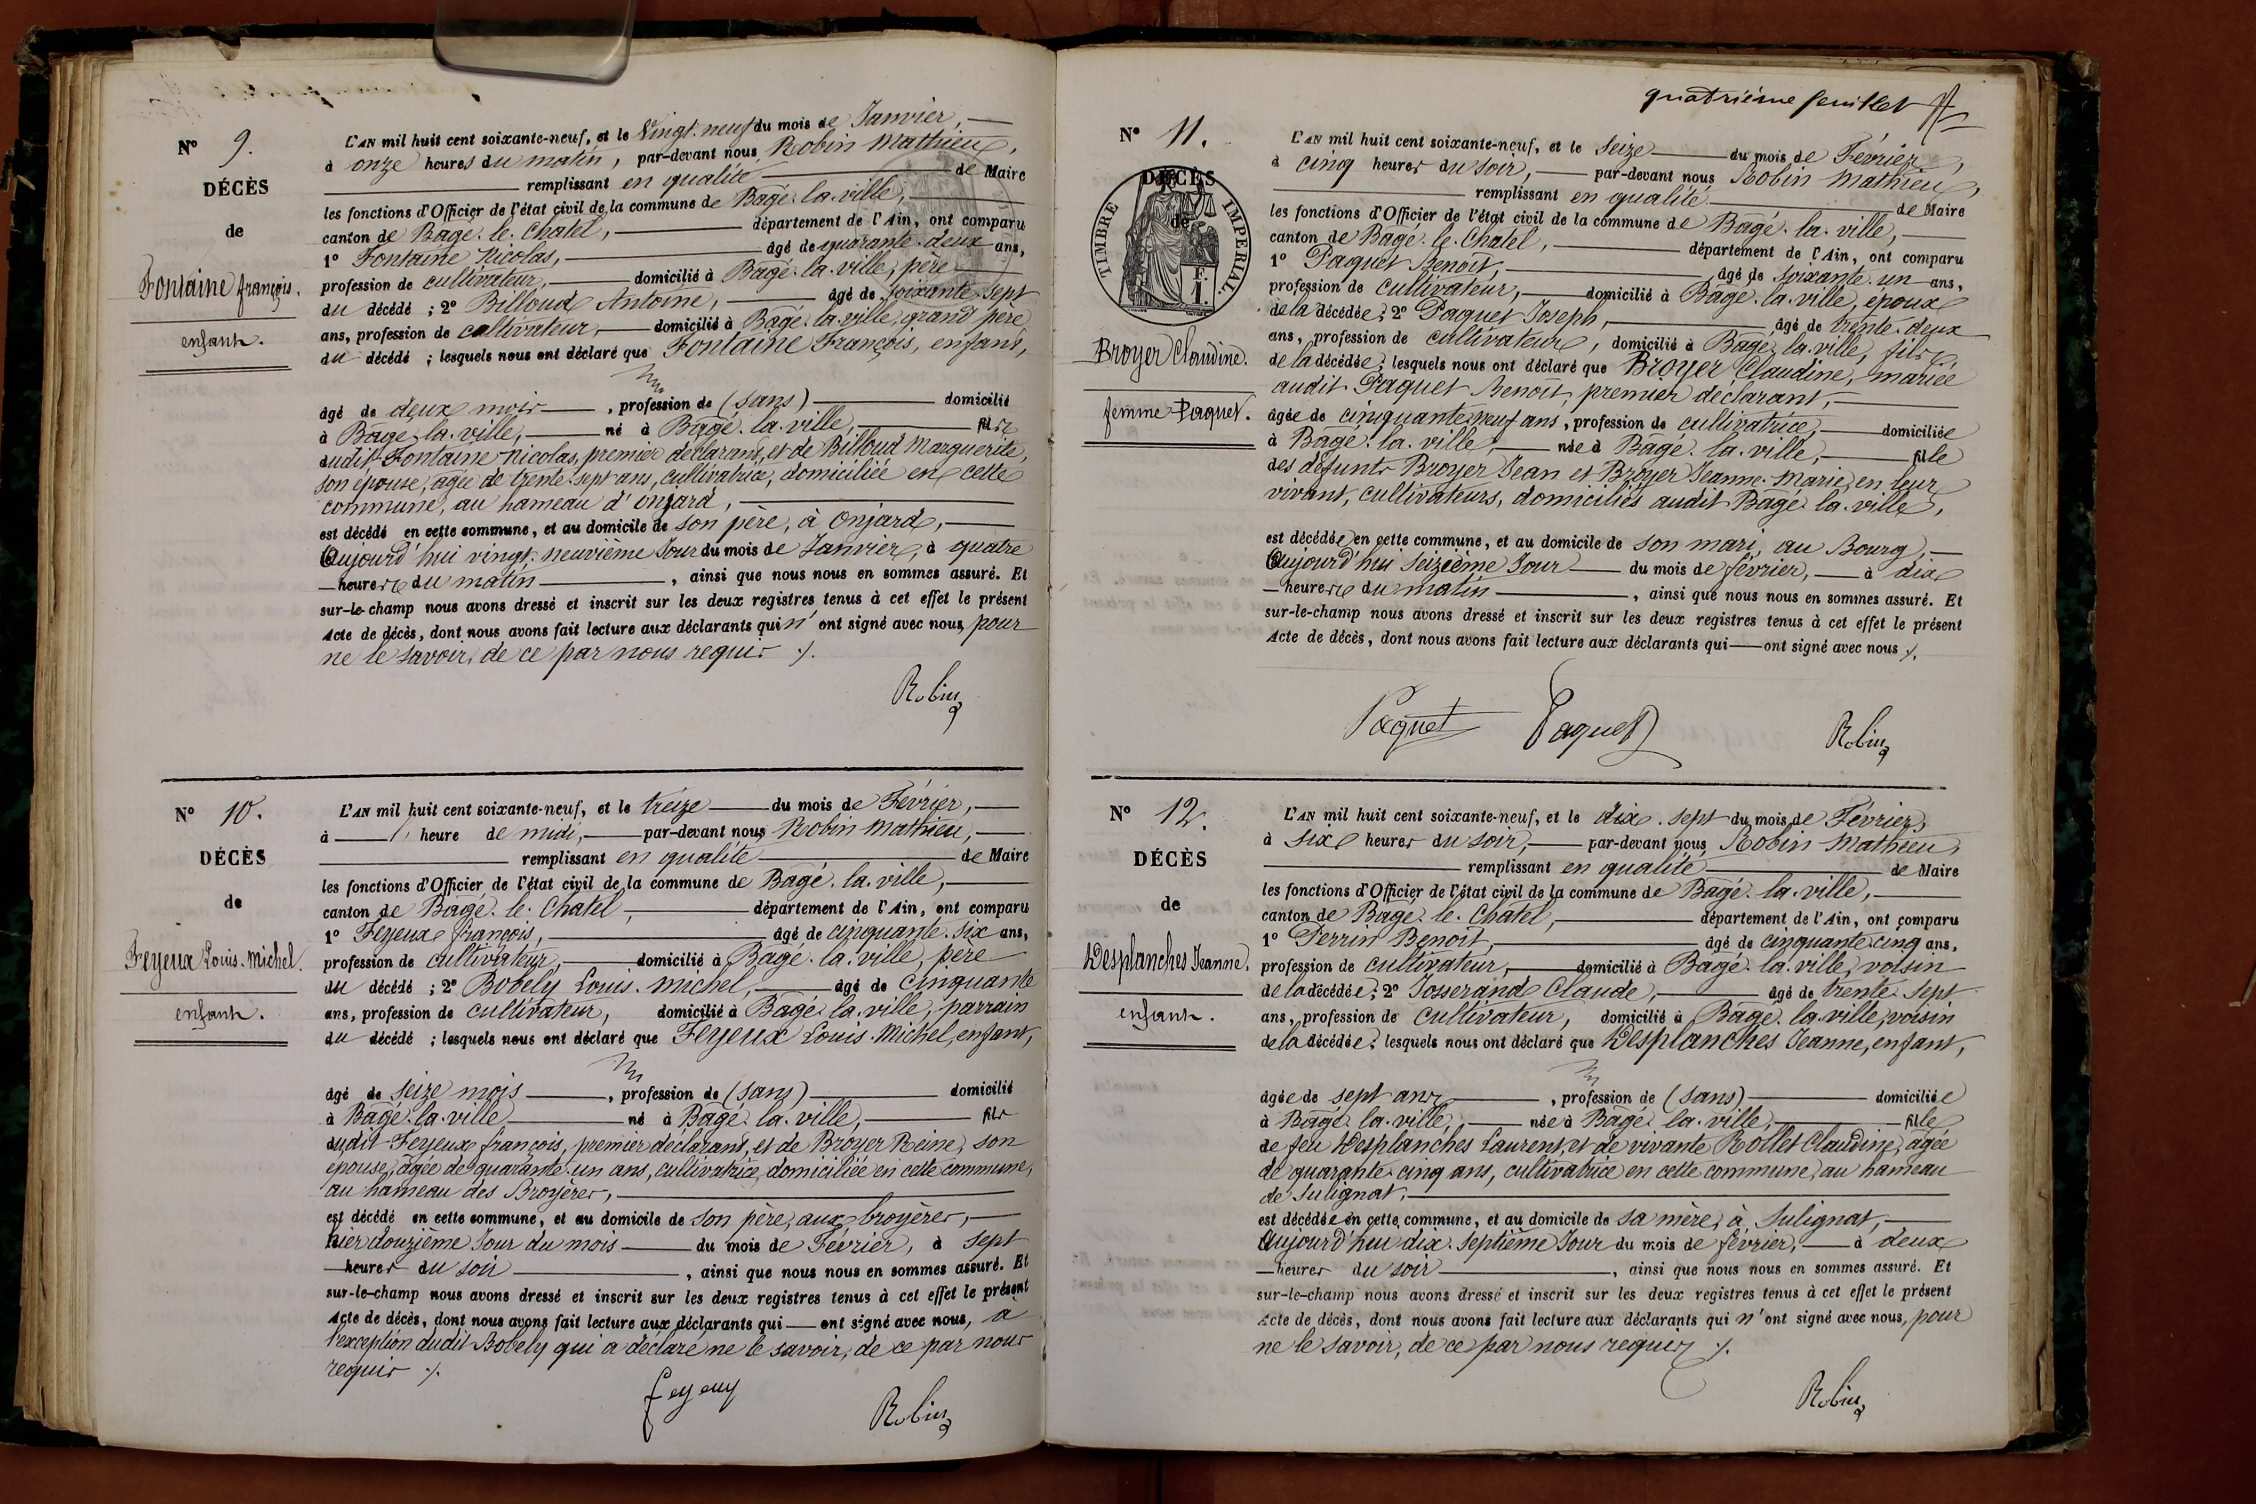 N° 9.
DÉCÈS
de
Fontaine françois.
enfant.
L'AN mil huit cent soixante-neuf, et le Vingt-neuf du mois de Janvier,
à onze heures du matin, par-devant nous Robin Mathieu,
remplissant en qualité de Maire
les fonctions d'Officier de l'état civil de la commune de Bagé-la-ville,
canton de Bagé-le-Chatel, département de l'Ain, ont comparu
1° Fontaine Nicolas, âgé de quarante-deux ans,
profession de cultivateur, domicilié à Bagé-la-ville, père
du décédé ; 2° Billoud Antoine, âgé de soixante-sept
ans, profession de cultivateur, domicilié à Bagé-la-ville, grand père
du décédé ; lesquels nous ont déclaré que Fontaine François, enfant,
âgé de deux mois, profession de (sans) domicilié
à Bagé-la-ville, né à Bagé-la-ville, fils
dudit Fontaine Nicolas, premier déclarant, et de Billoud Marguerite,
son épouse, âgée de trente-sept ans, cultivatrice, domiciliée en cette
commune, au hameau d'onjard,
est décédé en cette commune, et au domicile de son père, à Onjard,
Aujourd'hui vingt-neuvième Jour du mois de Janvier, à quatre
heures du matin, ainsi que nous nous en sommes assuré. Et
sur-le-champ nous avons dressé et inscrit sur les deux registres tenus à cet effet le présent
Acte de décès, dont nous avons fait lecture aux déclarants qui n'ont signé avec nous, pour
ne le savoir, de ce par nous requis ./.
Robin
N° 10.
DÉCÈS
de
Feyeux Louis-Michel.
enfant.
L'AN mil huit cent soixante-neuf, et le treize du mois de Février,
à 1 heure de midi, par-devant nous Robin Mathieu,
remplissant en qualité de Maire
les fonctions d'Officier de l'état civil de la commune de Bagé-la-ville,
canton de Bagé-le-Chatel, département de l'Ain, ont comparu
1° Feyeux françois, âgé de cinquante-six ans,
profession de cultivateur, domicilié à Bagé-la-ville, père
du décédé ; 2° Bobely Louis-Michel, âgé de cinquante
ans, profession de cultivateur, domicilié à Bagé-la-ville, parrain
du décédé ; lesquels nous ont déclaré que Feyeux Louis-Michel, enfant,
âgé de seize mois, profession de (sans) domicilié
à Bagé-la-ville né à Bagé-la-ville, fils
dudit Feyeux françois, premier déclarant, et de Broyer Reine, son
épouse, âgée de quarante-un ans, cultivatrice, domiciliée en cette commune,
au hameau des Broyères,
est décédé en cette commune, et au domicile de son père, aux broyères,
hier douzième Jour du mois du mois de Février, à sept
heures du soir, ainsi que nous nous en sommes assuré. Et
sur-le-champ nous avons dressé et inscrit sur les deux registres tenus à cet effet le présent
Acte de décès, dont nous avons fait lecture aux déclarants qui ont signé avec nous, à
l'exception dudit Bobely qui a déclaré ne le savoir, de ce par nous
requis ./.
feyeux
Robin
quatrième feuillet
N° 11.
DÉCÈS
de
TIMBRE IMPERIAL.
E. I.
Broyer Claudine.
femme Paquet.
L'AN mil huit cent soixante-neuf, et le seize du mois de Février,
à cinq heures du soir, par-devant nous Robin Mathieu,
remplissant en qualité de Maire
les fonctions d'Officier de l'état civil de la commune de Bagé-la-ville,
canton de Bagé-le-Chatel, département de l'Ain, ont comparu
1° Paquet Benoit, âgé de soixante-un ans,
profession de cultivateur, domicilié à Bagé-la-ville, époux
de la décédée ; 2° Paquet Joseph, âgé de trente-deux
ans, profession de cultivateur, domicilié à Bagé-la-ville, fils
de la décédée ; lesquels nous ont déclaré que Broyer Claudine, mariée
audit Paquet Benoit, premier déclarant,
âgée de cinquante-neuf ans, profession de cultivatrice, domiciliée
à Bagé-la-ville, née à Bagé-la-ville, fille
des défunts Broyer Jean et Broyer Jeanne-Marie, en leur
vivant, cultivateurs, domiciliés audit Bagé-la-ville,
est décédée en cette commune, et au domicile de son mari, au Bourg,
Aujourd'hui seizième Jour du mois de février, à dix
heures du matin, ainsi que nous nous en sommes assuré. Et
sur-le-champ nous avons dressé et inscrit sur les deux registres tenus à cet effet le présent
Acte de décès, dont nous avons fait lecture aux déclarants qui ont signé avec nous ./.
Paquet Paquet Robin
N° 12.
DÉCÈS
de
Desplanches Jeanne.
enfant.
L'AN mil huit cent soixante-neuf, et le dix-sept du mois de Février,
à six heures du soir, par-devant nous Robin Mathieu,
remplissant en qualité de Maire
les fonctions d'Officier de l'état civil de la commune de Bagé-la-ville,
canton de Bagé-le-Chatel, département de l'Ain, ont comparu
1° Perrin Benoit, âgé de cinquante-cinq ans,
profession de cultivateur, domicilié à Bagé-la-ville, voisin
de la décédée ; 2° Josserand Claude, âgé de trente-sept
ans, profession de cultivateur, domicilié à Bagé-la-ville, voisin
de la décédée ; lesquels nous ont déclaré que Desplanches Jeanne, enfant,
âgée de sept ans, profession de (sans) domiciliée
à Bagé-la-ville, née à Bagé-la-ville, fille
de feu Desplanches Laurent, et de vivante Rollet Claudine, âgée
de quarante-cinq ans, cultivatrice en cette commune, au hameau
de Sulignat,
est décédée en cette commune, et au domicile de sa mère, à Sulignat,
Aujourd'hui dix-septième Jour du mois de février, à deux
heures du soir, ainsi que nous nous en sommes assuré. Et
sur-le-champ nous avons dressé et inscrit sur les deux registres tenus à cet effet le présent
Acte de décès, dont nous avons fait lecture aux déclarants qui n'ont signé avec nous, pour
ne le savoir, de ce par nous requis ./.
Robin